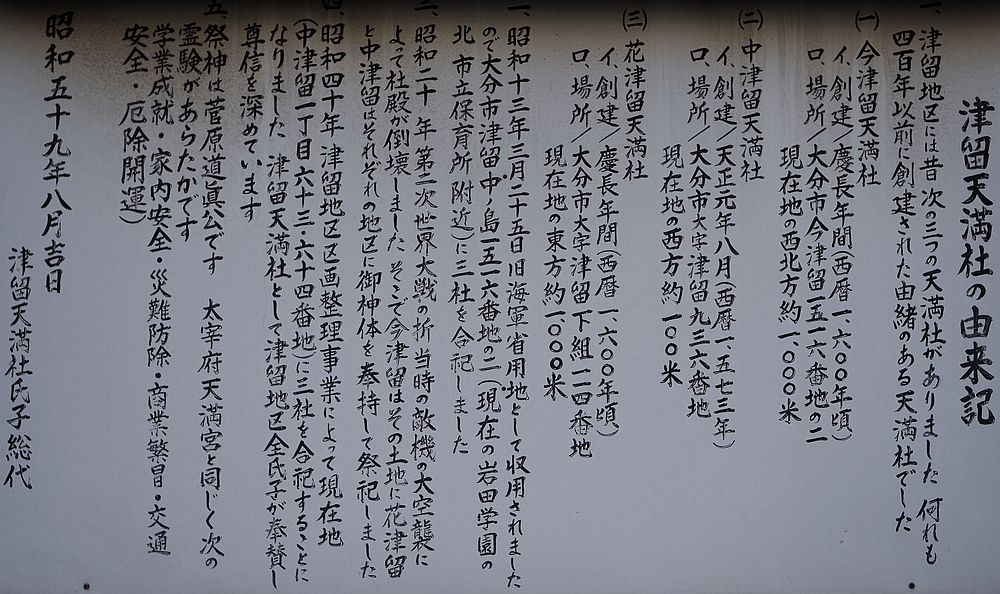 津留天満社の由来記
一、津留地区には昔 次の三つの天満社がありました 何れも
四百年以前に創建された由緒のある天満社でした
(一) 今津留天満社
イ、創建/慶長年間(西暦一、六〇〇年頃)
ロ、場所/大分市今津留一五一六番地の二
現在地の西北方約一、〇〇〇米
(二) 中津留天満社
イ、創建/天正元年八月(西暦一、五七三年)
ロ、場所/大分市大字津留九三六番地
現在地の西方約一〇〇米
(三) 花津留天満社
イ、創建/慶長年間(西暦一六〇〇年頃)
ロ、場所/大分市大字津留下組一二四番地
現在地の東方約一〇〇〇米
一、昭和十三年三月二十五日旧海軍省用地として収用されました
ので大分市津留中ノ島一五一六番地の二(現在の岩田学園の
北 市立保育所 附近)に三社を合祀しました
昭和二十 年 第二次世界大戦の折 当時の敵機の大空襲に
よって社殿が倒壊しました そこで今津留はその土地に花津留
と中津留はそれぞれの地区に御神体を奉持して祭祀しました
四 昭和四十年 津留地区区画整理事業によって現在地
(中津留一丁目六十三・六十四番地)に三社を合祀することに
なりました 津留天満社として津留地区全氏子が奉賛し
尊信を深めています
五、祭神は菅原道眞公です 太宰府天満宮と同じく次の
霊験があらたかです
学業成就・家内安全・災難防除・商業繁昌・交通
安全・厄除開運)
昭和五十九年八月吉日
津留天満社氏子総代